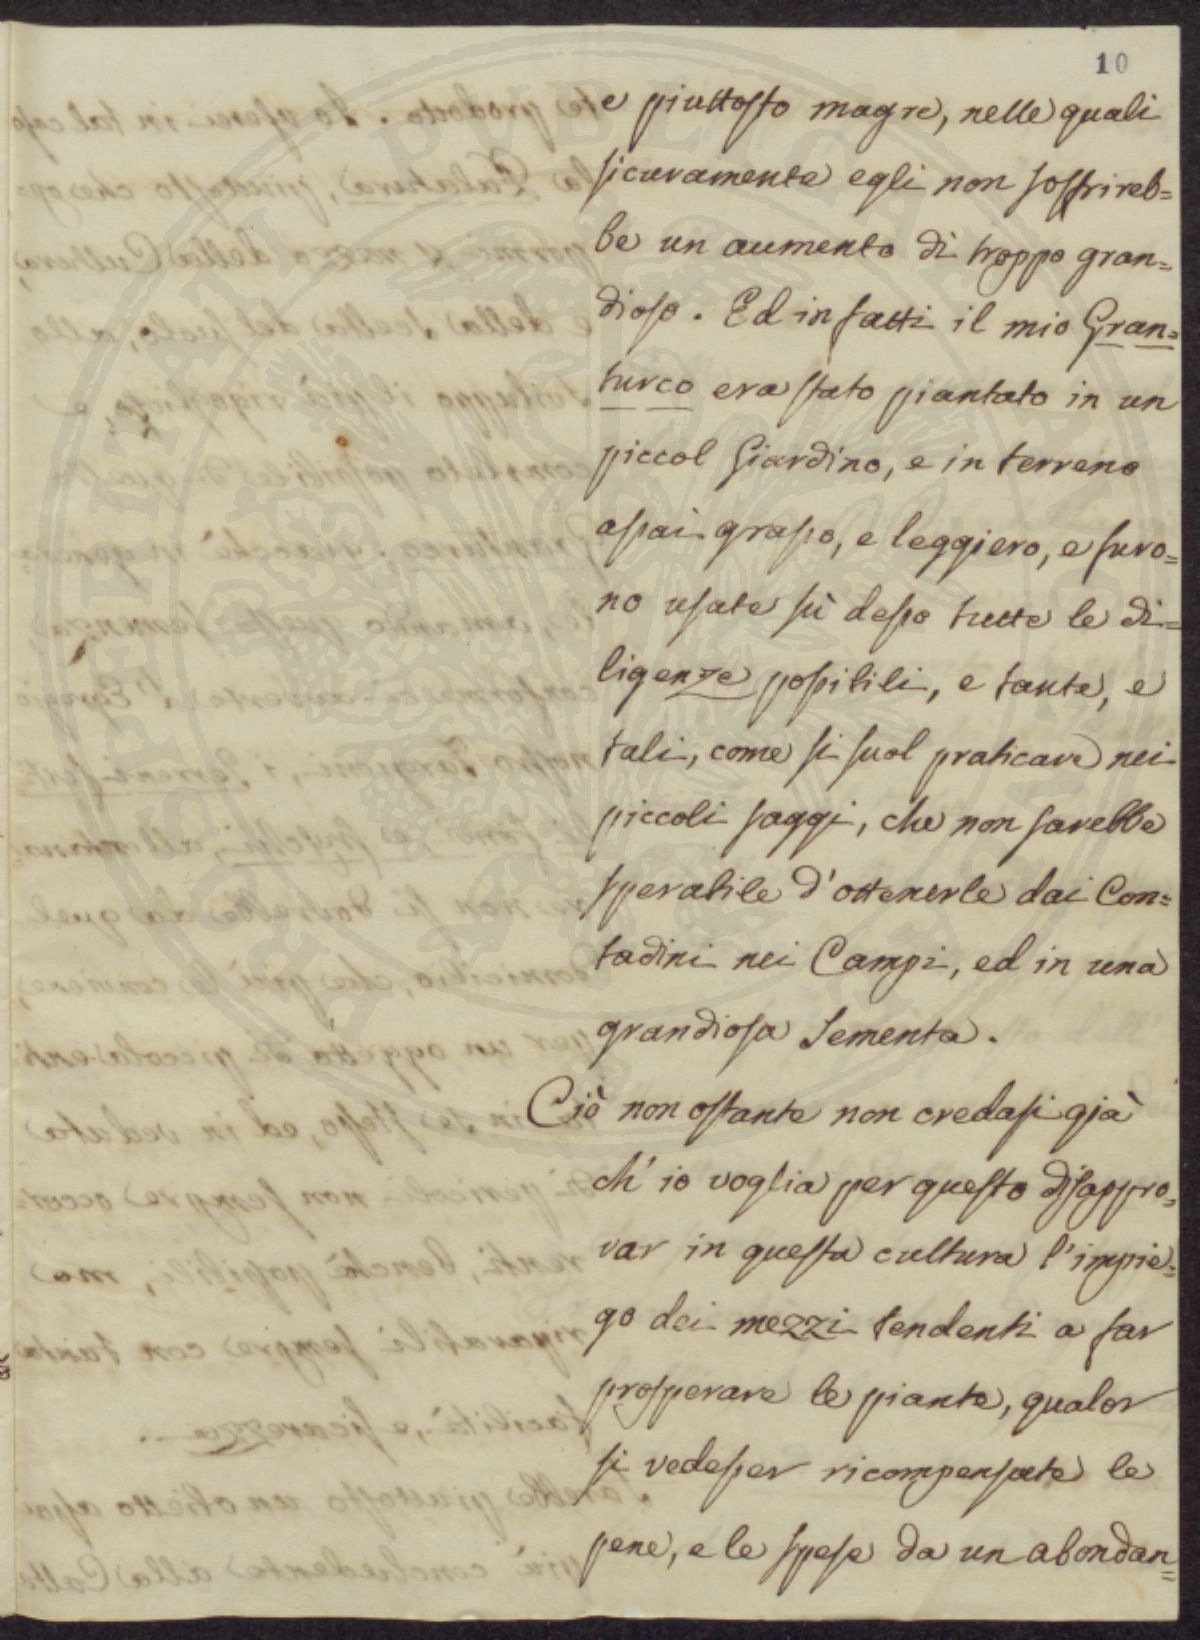 10
e piuttosto magre, nelle quali
sicuramente egli non soffrireb=
be un aumento di troppo gran=
dioso. Ed in fatti il mio Gran=
turco era stato piantato in un
piccol Giardino, e in terreno
assai grasso, e leggiero, e furo=
no usate sù desso tutte le di=
ligenze possibili, e tante, e
tali, come si suol praticare nei
piccoli saggi, che non sarebbe
sperabile d'ottenerle dai Con=
tadini nei Campi, ed in una
grandiosa Sementa.
Ciò non ostante non credasi già
ch' io voglia per questo disappro=
var in questa cultura l'impie=
go dei mezzi tendenti a far
prosperare le piante, qualor
si vedesser ricompensate le
pene, e le spese da un abondan=